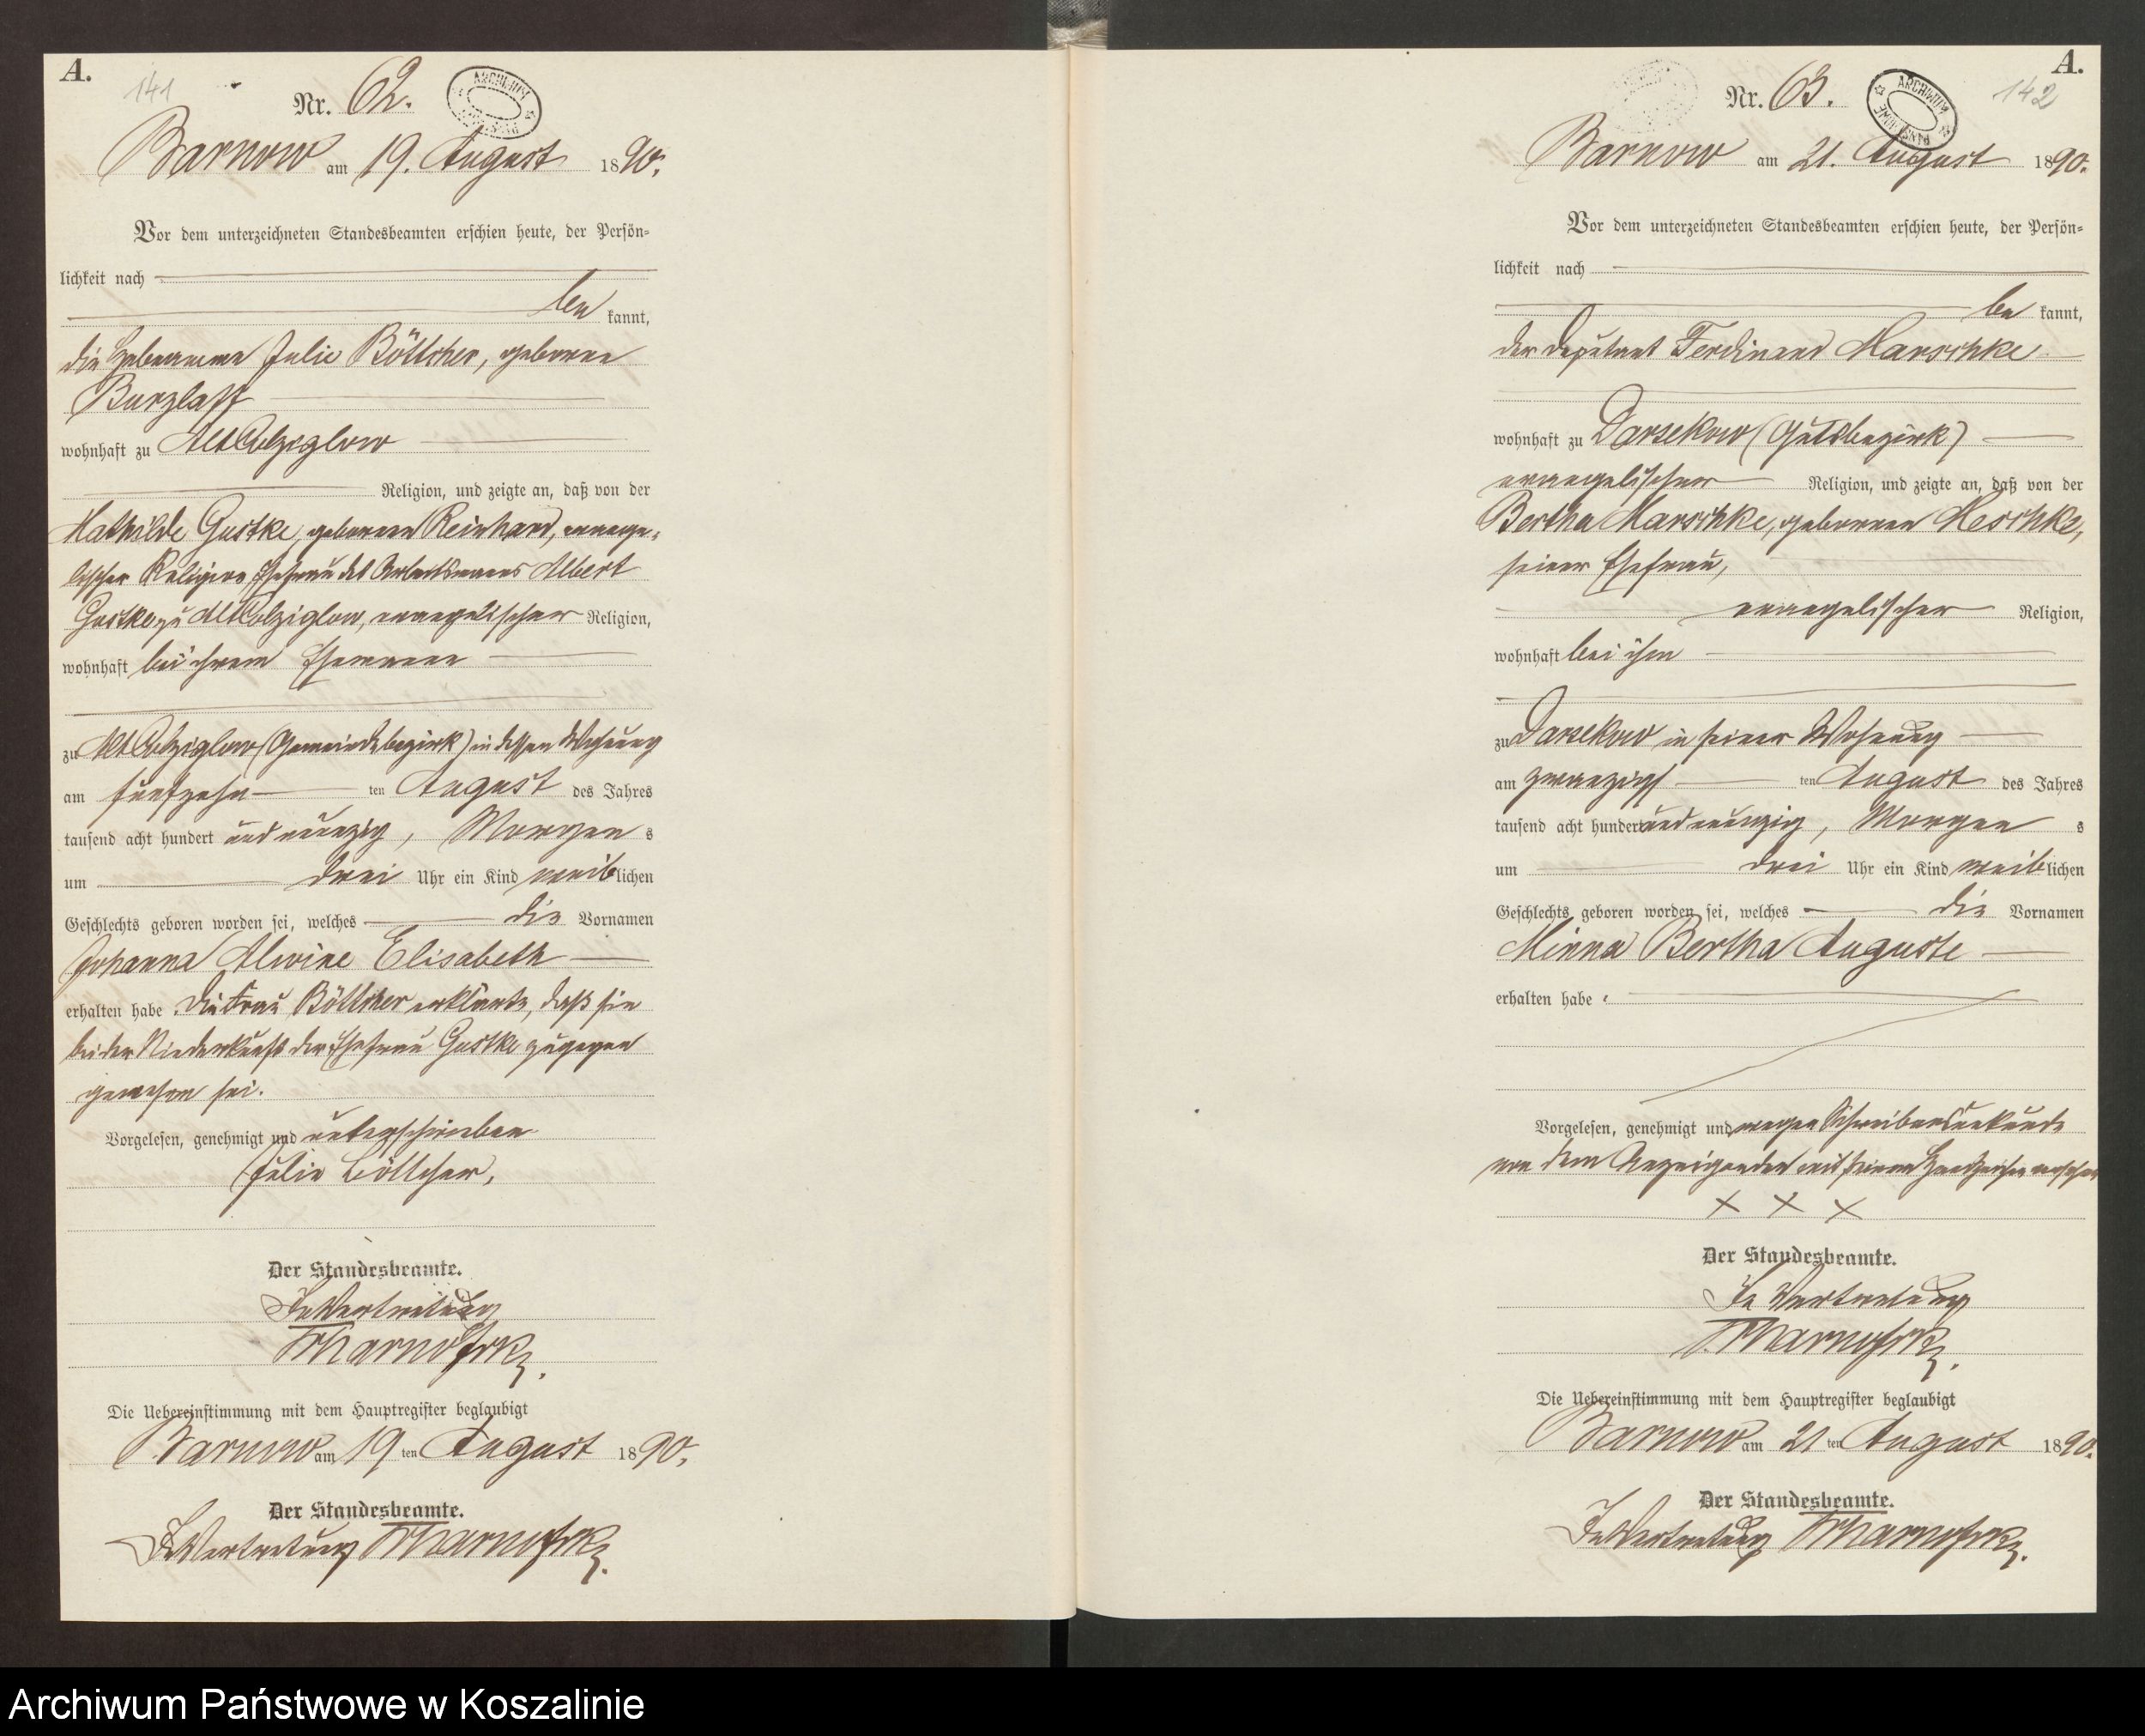 A.
141
Nr. 62.
ARCHIWUM
Barnow am 19. August 1890.
Vor dem unterzeichneten Standesbeamten erschien heute, der Persön-
lichkeit nach
be kannt,
die Hebeamme Julie Böttcher, geborene
Burzlaff
wohnhaft zu Alt Colziglow
Religion, und zeigte an, daß von der
Mathilde Gustke, geborenen Reinhard, evange-
lischer Religion Ehefrau des Arbeitsmanns Albert
Gustke zu Alt Colziglow, evangelischer Religion,
wohnhaft bei ihrem Ehemann
zu Alt Colziglow (Gemeindebezirk) in dessen Wohnung
am fünfzehn ten August des Jahres
tausend acht hundert und neunzig, Morgen s
um drei Uhr ein Kind weiblichen
Geschlechts geboren worden sei, welches die Vornamen
Johanna Alwine Elisabeth
erhalten habe. Die Frau Böttcher erklärte, daß sie
bei der Niederkunft der Ehefrau Gustke zugegen
gewesen sei.
Vorgelesen, genehmigt und unterschrieben
Julie Böttcher,
Der Standesbeamte.
In Vertretung
Die Uebereinstimmung mit dem Hauptregister beglaubigt
Barnow am 19 ten August 1890.
Der Standesbeamte.
In Vertretung
A.
142
Nr. 63.
ARCHIWUM PAŃSTWOWE
Barnow am 21. August 1890.
Vor dem unterzeichneten Standesbeamten erschien heute, der Persön-
lichkeit nach
be kannt,
der Deputant Ferdinand Marschke
wohnhaft zu Darsekow (Gutsbezirk)
evangelischer Religion, und zeigte an, daß von der
Bertha Marschke, geborenen Meschke,
seiner Ehefrau,
evangelischer Religion,
wohnhaft bei ihm
zu Darsekow in seiner Wohnung
am zwanzigs ten August des Jahres
tausend acht hundert und neunzig, Morgen s
um drei Uhr ein Kind weiblichen
Geschlechts geboren worden sei, welches die Vornamen
Minna Bertha Auguste
erhalten habe.
Vorgelesen, genehmigt und wegen Schreibensunkunde
von dem Anzeigenden mit seinem Handzeichen versehen
X X X
Der Standesbeamte.
In Vertretung
Die Uebereinstimmung mit dem Hauptregister beglaubigt
Barnow am 21 ten August 1890.
Der Standesbeamte.
In Vertretung
Archiwum Państwowe w Koszalinie